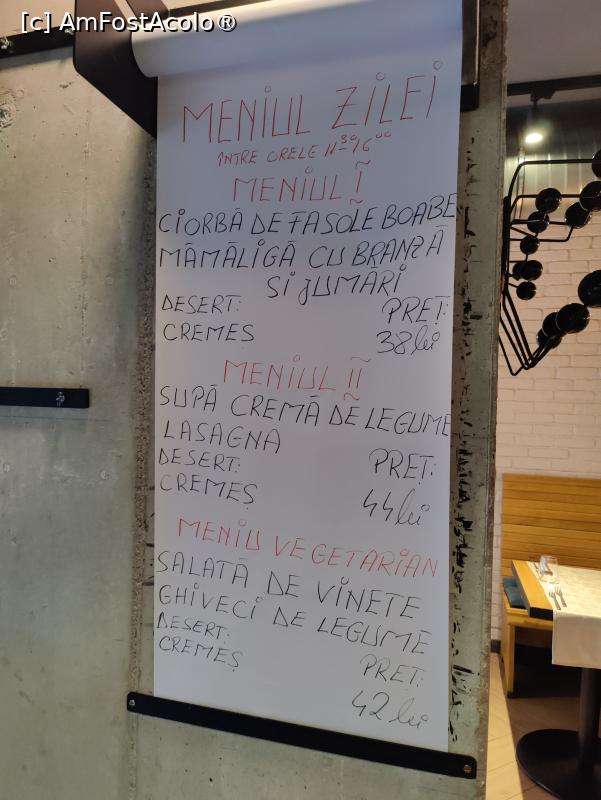 [c] AmFostAcolo®
MENIUL ZILEI
ÎNTRE ORELE 11³⁰-16⁰⁰
MENIUL I
CIORBĂ DE FASOLE BOABE
MĂMĂLIGĂ CU BRANZĂ
SI JUMĂRI
DESERT: PREȚ:
CREMES 38 lei
MENIUL II
SUPĂ CREMĂ DE LEGUME
LASAGNA
DESERT: PREȚ:
CREMEȘ 44 lei
MENIU VEGETARIAN
SALATĂ DE VINETE
GHIVECI DE LEGUME
DESERT: PREȚ:
CREMEȘ 42 lei